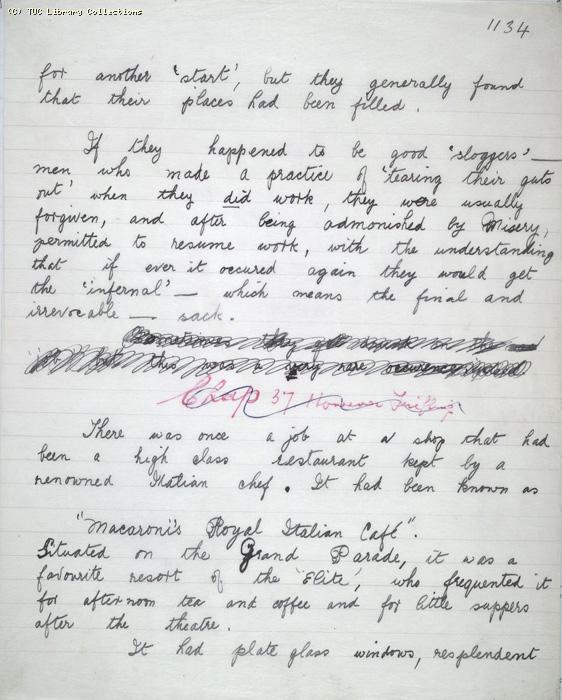 (C) TUC Library Collections
1134
for another 'start', but they generally found
that their places had been filled.
If they happened to be good 'sloggers' —
men who made a practice of 'tearing their guts
out' when they did work, they were usually
forgiven, and after being admonished by Misery,
permitted to resume work, with the understanding
that if ever it occured again they would get
the 'infernal' — which means the final and
irrevocable — sack.
Sometimes they got drunk
but this was a very rare occurence
Chap 37 However
There was once a job at a shop that had
been a high class restaurant kept by a
renowned Italian chef. It had been known as
"Macaroni's Royal Italian Café".
Situated on the Grand Parade, it was a
favourite resort of the 'Elite', who frequented it
for afternoon tea and coffee and for little suppers
after the theatre.
It had plate glass windows, resplendent